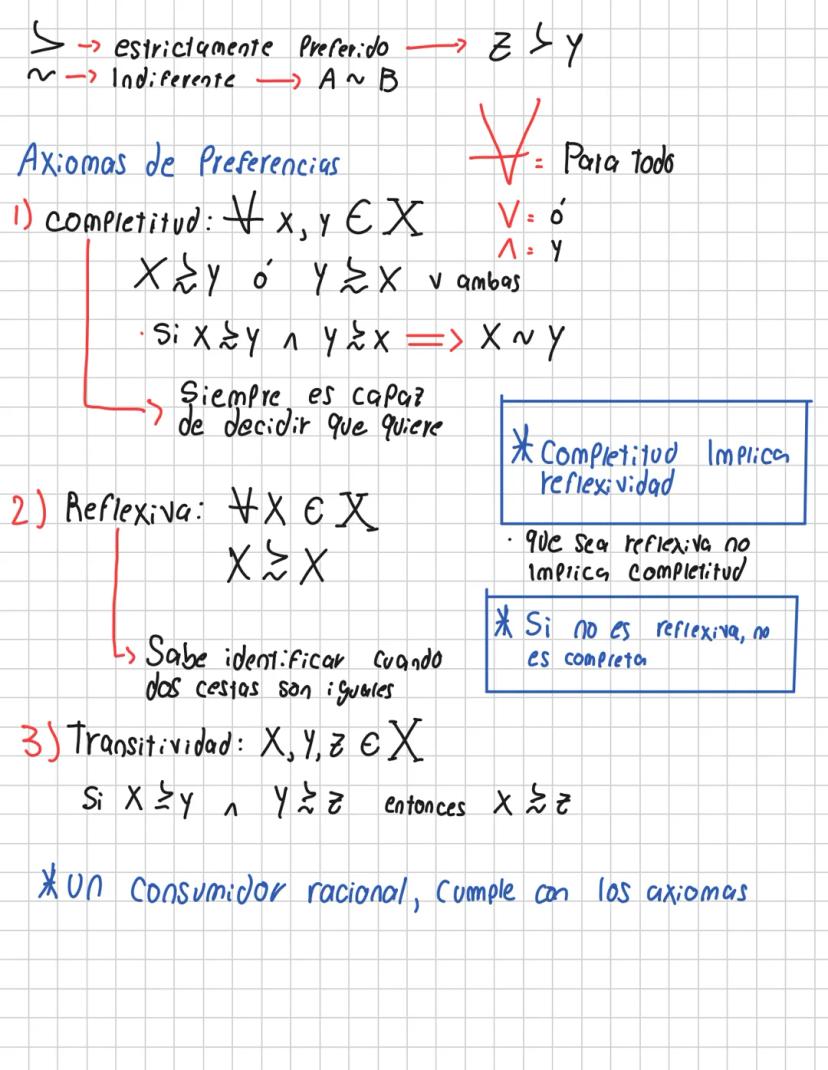 ≻ → estrictamente Preferido → Z ≻ y
~ → Indiferente → A ~ B
Axiomas de Preferencias
∀ = Para todo
1) Completitud: ∀ x, y ∈ X
V = ó
Λ = y
X ≿ y ó y ≿ X v ambas
· Si X ≿ y ∧ y ≿ x => X ~ y
Siempre es capaz
de decidir que quiere
* Completitud Implica
reflexividad
2) Reflexiva: ∀ X ∈ X
X ≿ X
· que sea reflexiva no
Implica Completitud
* Si no es reflexiva, no
es completa
Sabe identificar cuando
dos cestas son iguales
3) Transitividad: X, Y, z ∈ X
Si X ≿ y ∧ y ≿ z entonces X ≿ z
* Un consumidor racional, cumple con los axiomas